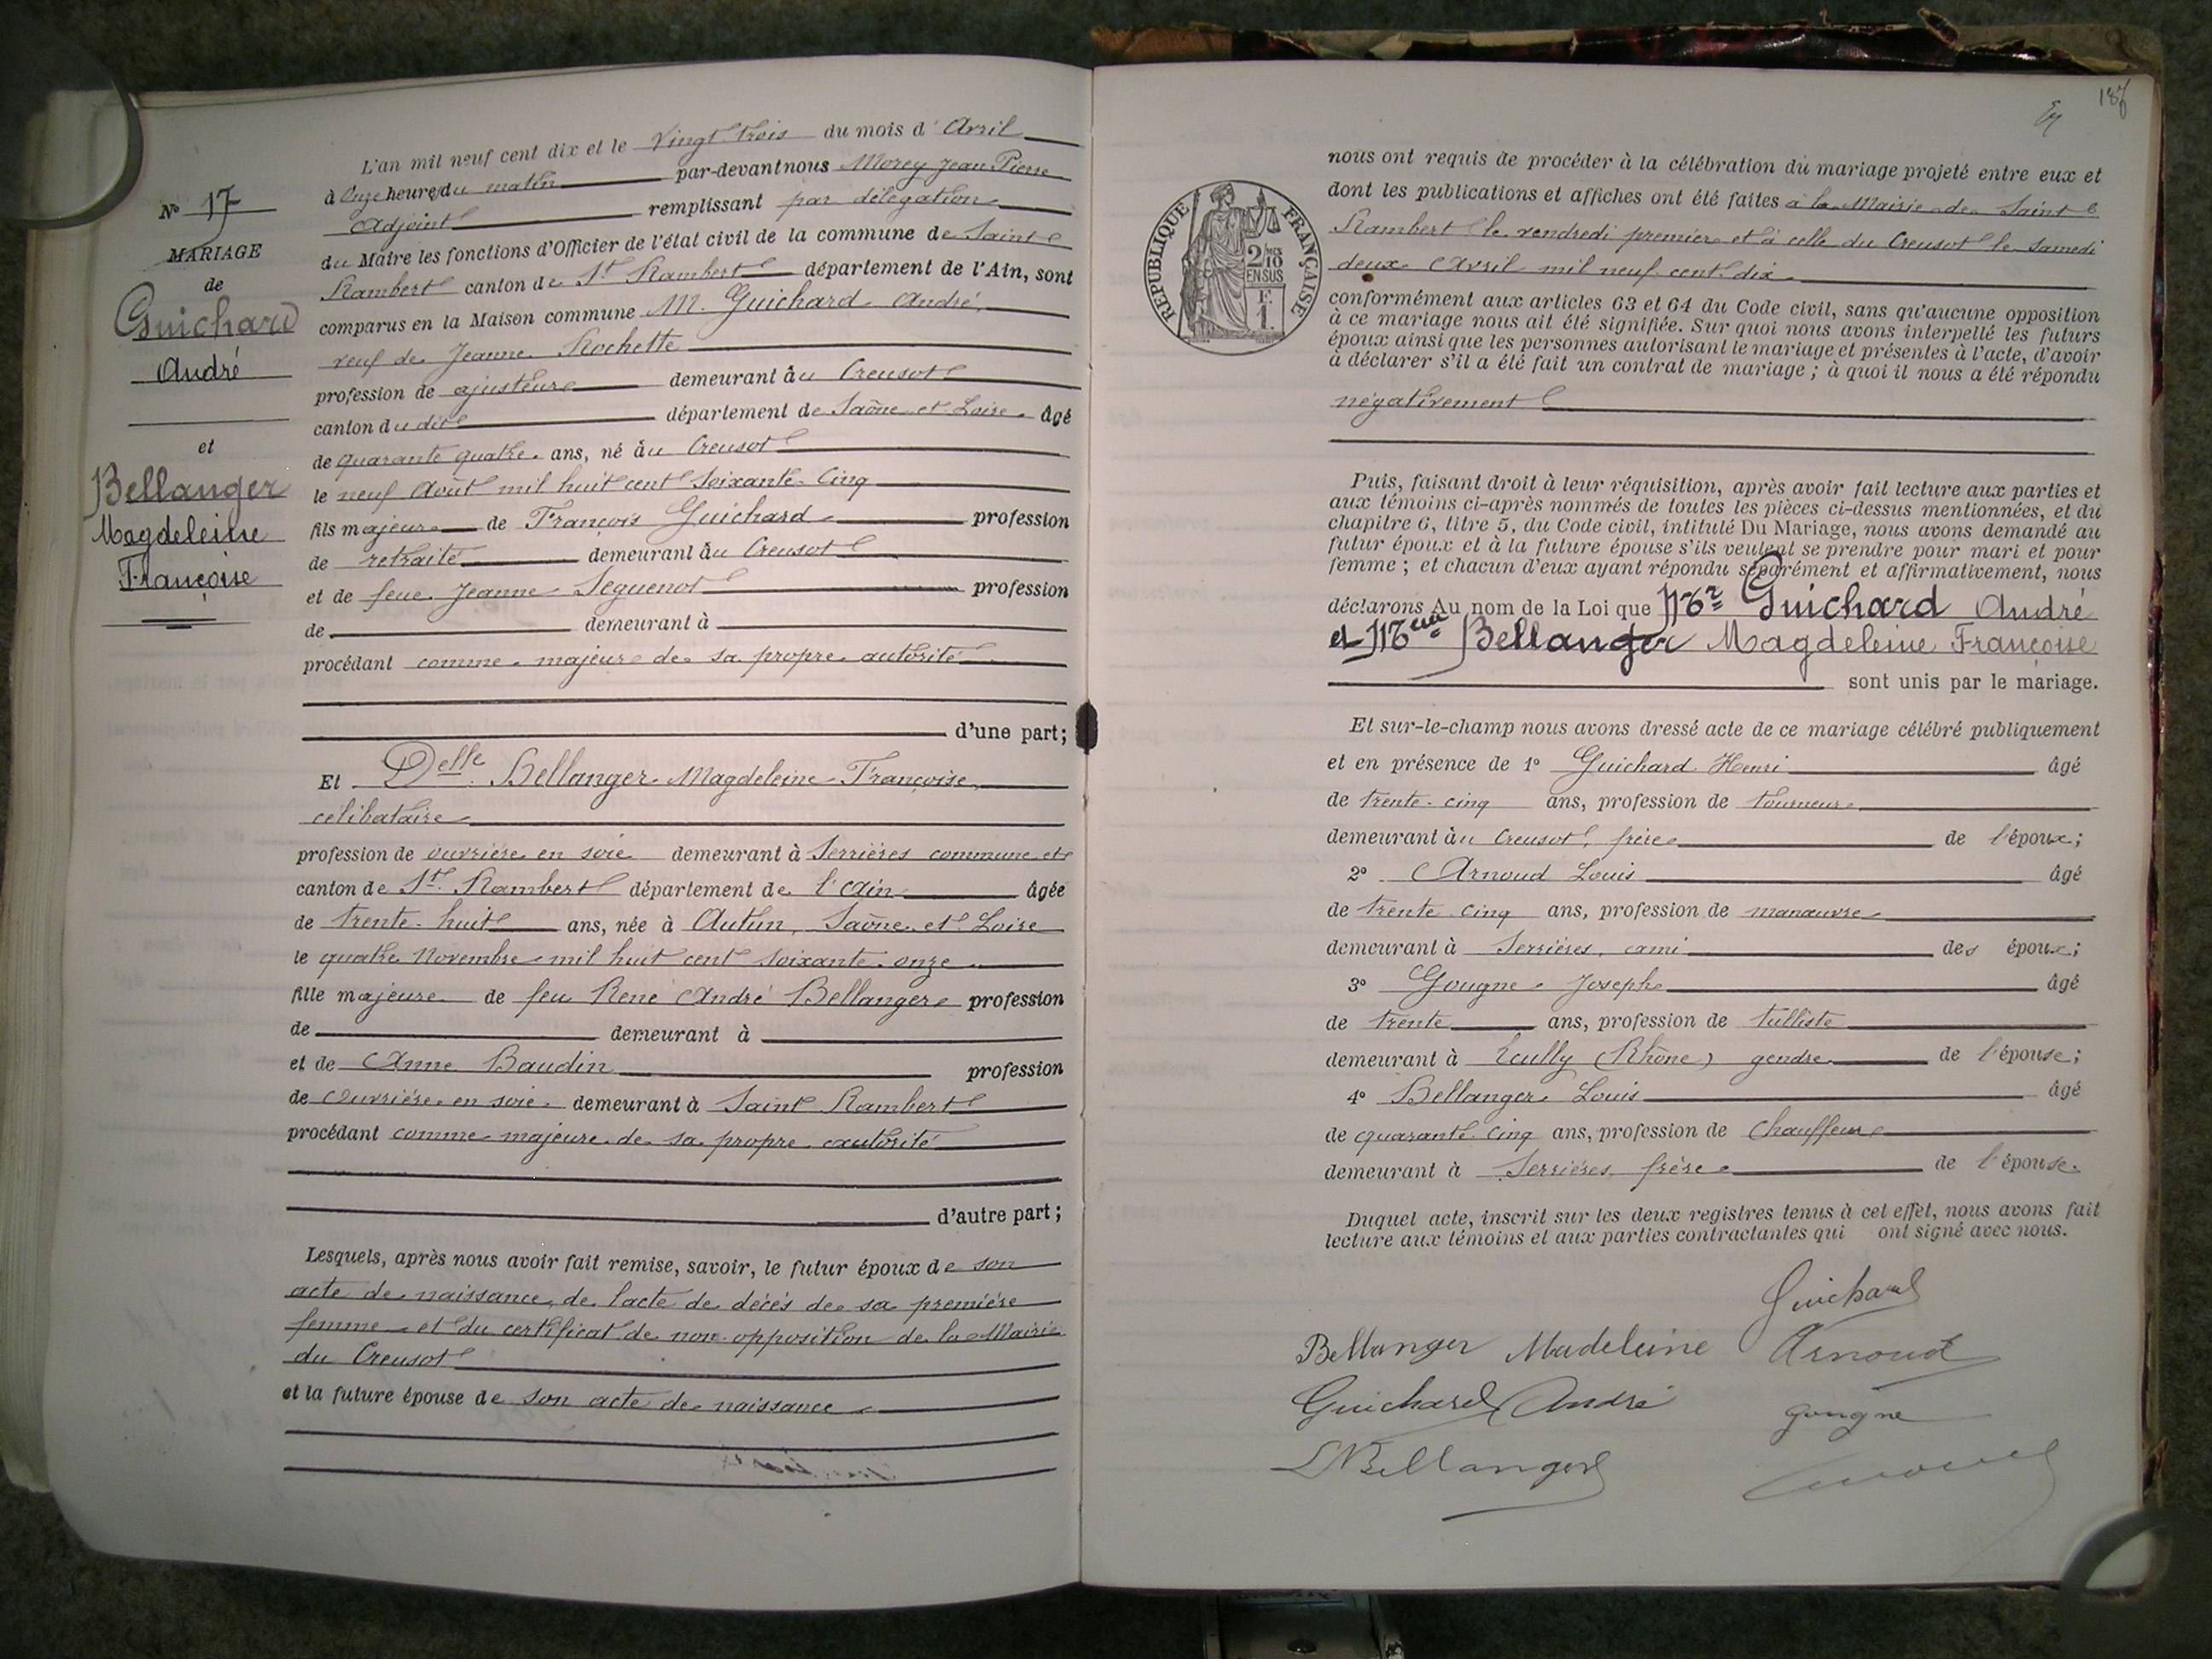 N° 17
MARIAGE
de
Guichard
André
et
Bellanger
Magdeleine
Françoise
L'an mil neuf cent dix et le vingt trois du mois d'Avril
à onze heures du matin par-devant nous Morey Jean Pierre
Adjoint remplissant par délégation
du Maire les fonctions d'Officier de l'état civil de la commune de Saint
Rambert canton de St Rambert département de l'Ain, sont
comparus en la Maison commune M. Guichard André,
veuf de Jeanne Rochette
profession de ajusteur demeurant au Creusot
canton du dit département de Saône et Loire âgé
de quarante quatre ans, né au Creusot
le neuf Août mil huit cent soixante-cinq
fils majeur de François Guichard profession
de retraité demeurant au Creusot
et de feue Jeanne Seguenot profession
de demeurant à
procédant comme majeur de sa propre autorité
d'une part;
Et Delle Bellanger Magdeleine Françoise,
célibataire
profession de ouvrière en soie demeurant à Serrières commune et
canton de St. Rambert département de l'Ain âgée
de trente-huit ans, née à Autun, Saône et Loire
le quatre Novembre mil huit cent soixante-onze
fille majeure de feu René André Bellanger profession
de demeurant à
et de Anne Baudin profession
de ouvrière en soie demeurant à Saint Rambert
procédant comme majeure de sa propre autorité
d'autre part;
Lesquels, après nous avoir fait remise, savoir, le futur époux de son
acte de naissance, de l'acte de décès de sa première
femme et du certificat de non opposition de la Mairie
du Creusot
et la future épouse de son acte de naissance
187
REPUBLIQUE FRANÇAISE
2/10 EN SUS
F. 1.
nous ont requis de procéder à la célébration du mariage projeté entre eux et
dont les publications et affiches ont été faites à la Mairie de Saint
Rambert le vendredi premier et à celle du Creusot le samedi
deux Avril mil neuf cent dix
conformément aux articles 63 et 64 du Code civil, sans qu'aucune opposition
à ce mariage nous ait été signifiée. Sur quoi nous avons interpellé les futurs
époux ainsi que les personnes autorisant le mariage et présentes à l'acte, d'avoir
à déclarer s'il a été fait un contrat de mariage; à quoi il nous a été répondu
négativement
Puis, faisant droit à leur réquisition, après avoir fait lecture aux parties et
aux témoins ci-après nommés de toutes les pièces ci-dessus mentionnées, et du
chapitre 6, titre 5, du Code civil, intitulé Du Mariage, nous avons demandé au
futur époux et à la future épouse s'ils veulent se prendre pour mari et pour
femme; et chacun d'eux ayant répondu séparément et affirmativement, nous
déclarons Au nom de la Loi que Mr Guichard André
et Melle Bellanger Magdeleine Françoise
sont unis par le mariage.
Et sur-le-champ nous avons dressé acte de ce mariage célébré publiquement
et en présence de 1° Guichard Henri âgé
de trente-cinq ans, profession de tourneur
demeurant au Creusot, frère de l'époux;
2° Arnoud Louis âgé
de trente cinq ans, profession de manœuvre
demeurant à Serrières, ami des époux;
3° Gougne Joseph âgé
de trente ans, profession de tulliste
demeurant à Ecully (Rhône) gendre de l'épouse;
4° Bellanger Louis âgé
de quarante-cinq ans, profession de chauffeur
demeurant à Serrières, frère de l'épouse.
Duquel acte, inscrit sur les deux registres tenus à cet effet, nous avons fait
lecture aux témoins et aux parties contractantes qui ont signé avec nous.
Guichard
Bellanger Madeleine Arnoud
Guichard André gougne
L Bellanger